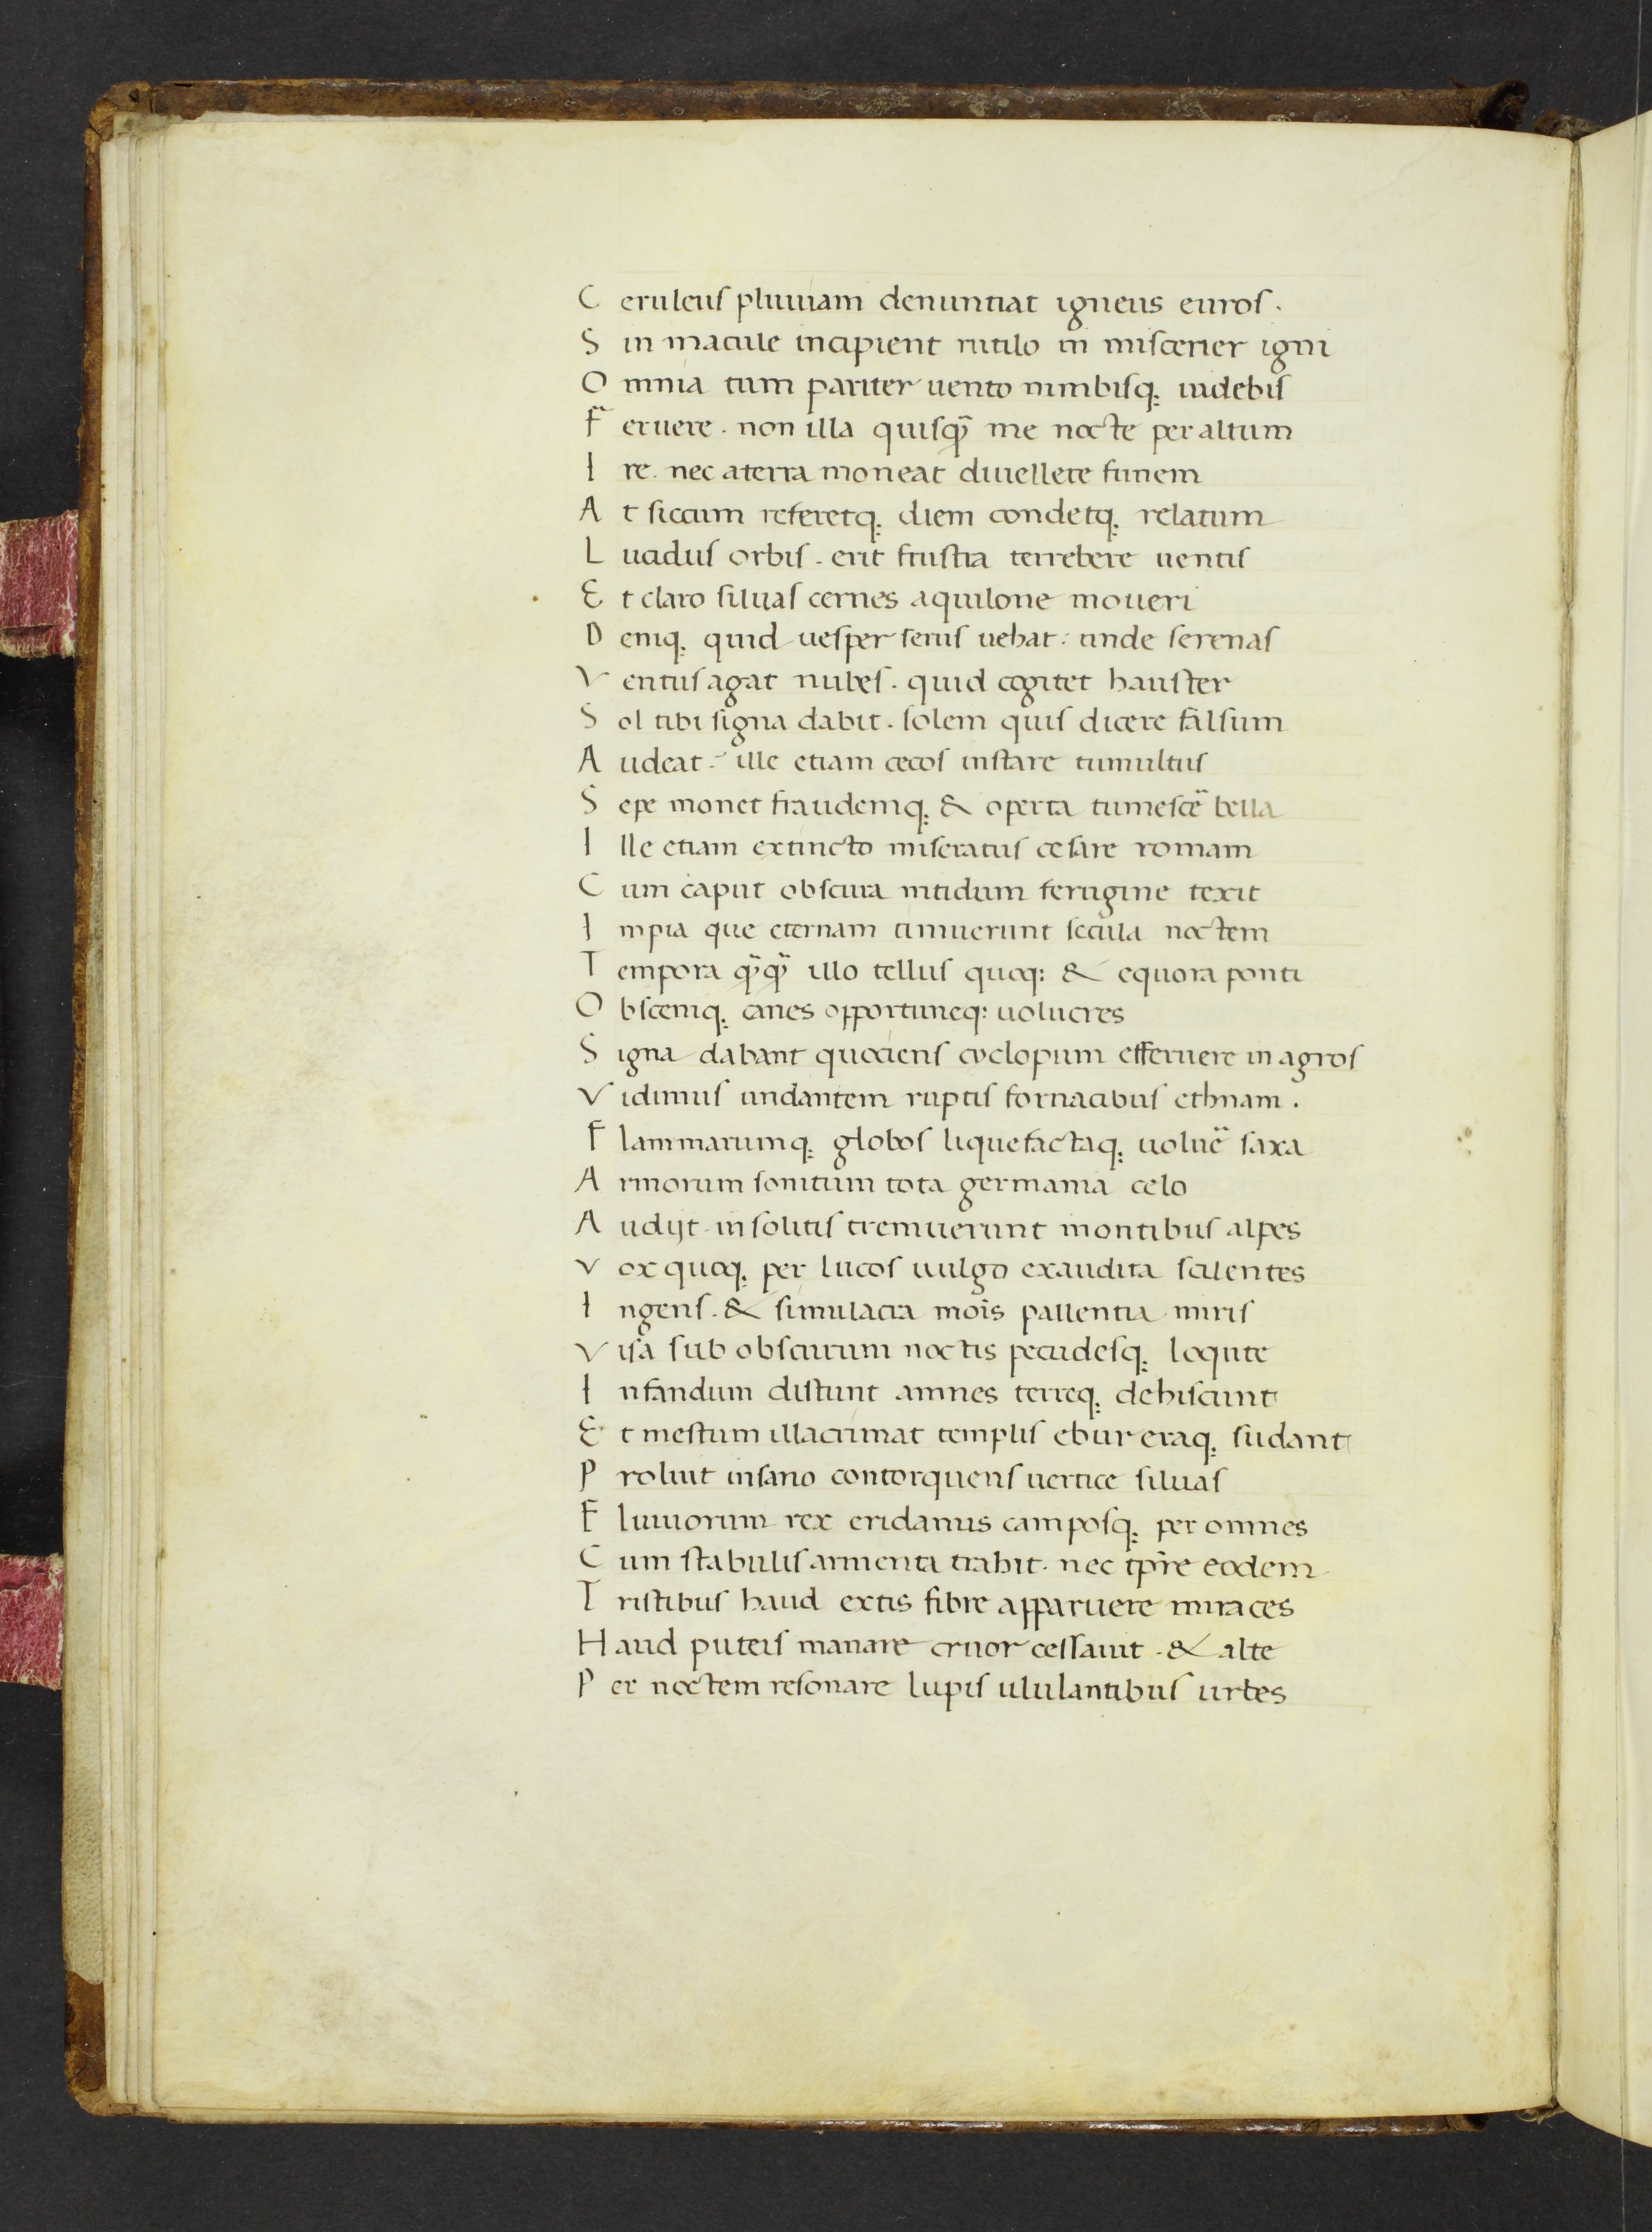 C eruleus pluuiam denuntiat igneus euros.
S in macule incipient rutilo in̄ miscerier igni
O mnia tum pariter uento nimbisq; uidebis
F eruere. non illa quisq̃ me nocte per altum
I re. nec aterra moneat diuellere funem
A t siccum referetq; diem condetq; relatum
L ucidus orbis. erit frustra terrebere uentis
E t claro siluas cernes aquilone moueri
D eniq; quid uesper serus uehat: unde serenas
V entus agat nubes. quid cogitet hauster
S ol tibi signa dabit. solem quis dicere falsum
A udeat. ille etiam cecos instare tumultus
S epe monet fraudemq; & operta tumescē bella
I lle etiam extincto miseratus cesare romam
C um caput obscura nitidum ferugine texit
I mpia que eternam timuerunt secula noctem
T empora q̃q̃ illo tellus quoq: & equora ponti
O bsceniq; canes opportuneq: uolucres
S igna dabant quociens cyclopum efferuere in agros
V idimus undantem ruptis fornacibus ethnam.
F lammarumq; globos liquefactaq; uoluē saxa
A rmorum sonitum tota germania celo
A udijt. insolitis tremuerunt montibus alpes
V ox quoq; per lucos uulgo exaudita scilentes
I ngens. & simulacra mois̄ pallentia miris
V isa sub obscurum noctis pecudesq; loqute
I nfandum distunt amnes terreq; dehiscunt
E t mestum illacrimat templis ebur eraq; sudant
P roluit insano contorquens uertice siluas
F luuiorum rex eridanus camposq; per omnes
C um stabulis armenta trahit. nec tp̄re eodem
T ristibus haud extis fibre apparuere minaces
H aud puteis manare cruor cessauit. & alte
P er noctem resonare lupis ululantibus urbes